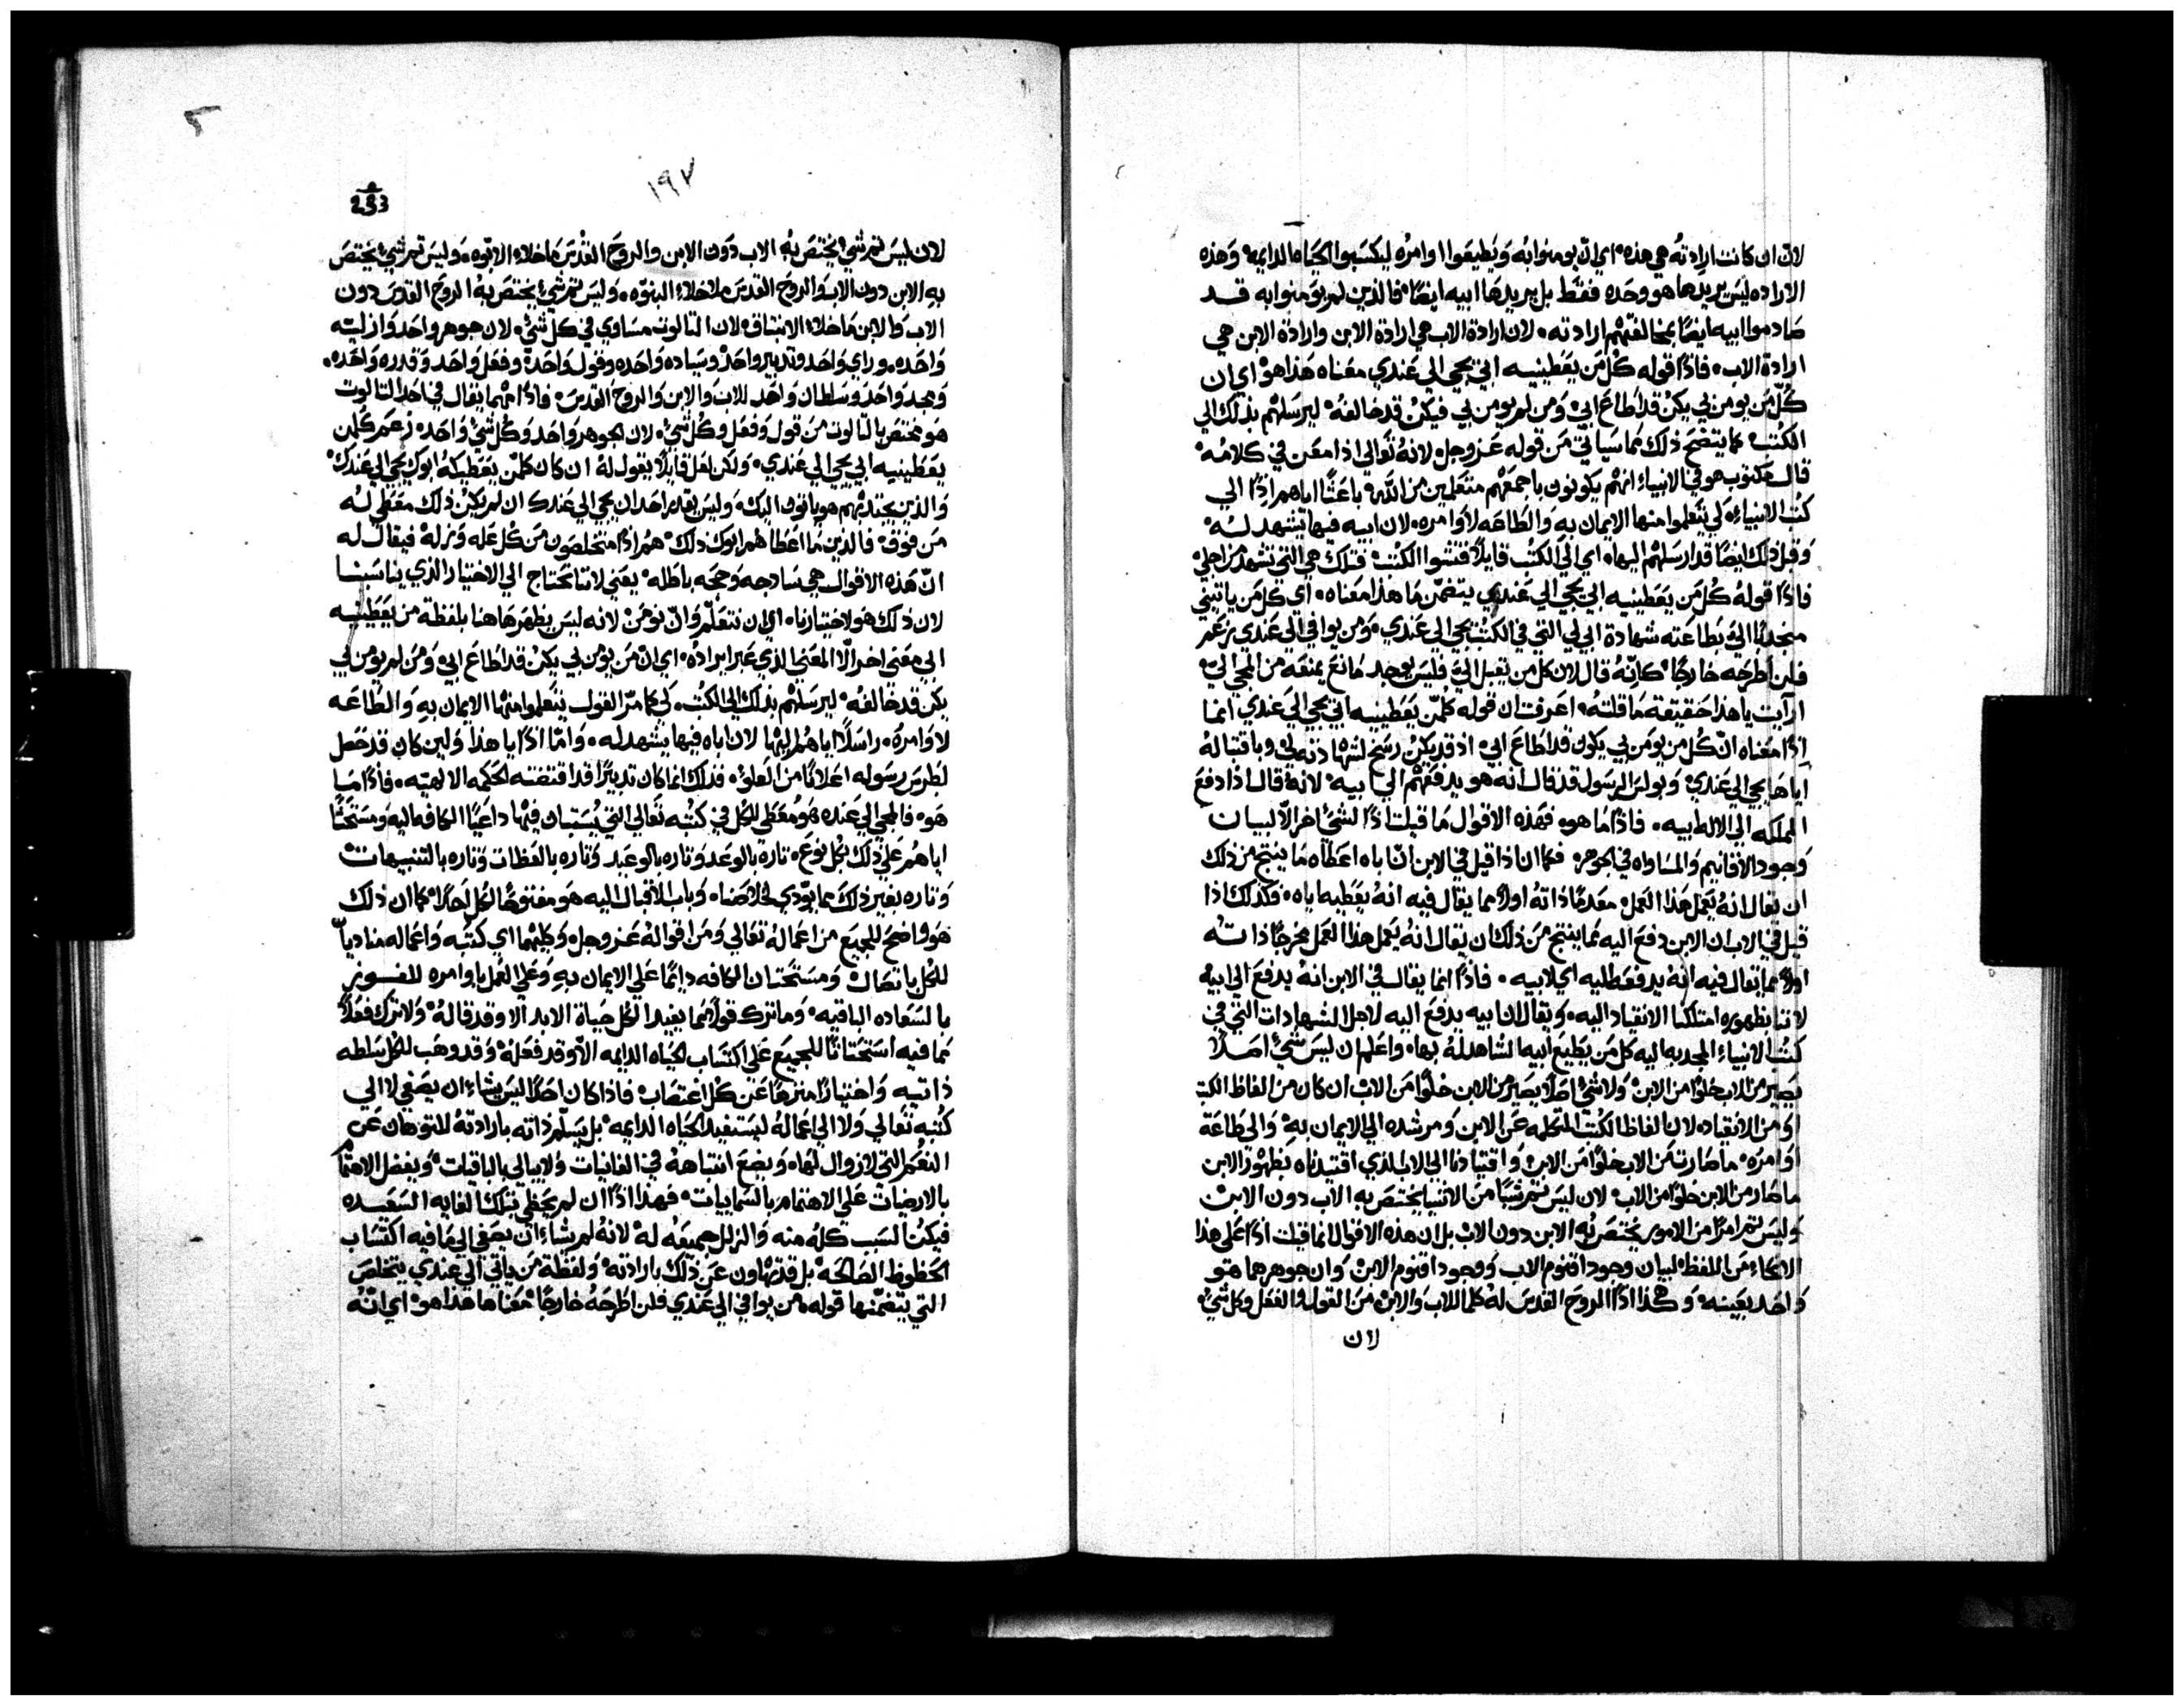 لان ان كانت ارادته هي هذه اي ان يومنوا به ويطيعوا اوامره ليكسبوا الحياه الدايمه وهذه
الاراده ليس يريدها هو وحده فقط بل يريدها ابيه ايضًا فالذين لم يومنوا به قد
صادموا ابيه ايضًا بمخالفتهم ارادته لان ارادة الاب هي ارادة الابن وارادة الابن هي
ارادة الاب فاذًا قوله كل من يعطينيه ابي يجي الي عندي معناه هذا هو اي ان
كل من يومن بي يكن قد اطاع ابي ومن لم يومن بي فيكن قد خالفه ليرسلهم بذلك الي
الكتب كما يتضح ذلك مما سياتي من قوله عز وجل لانه تعالي اذ امعن في كلامه
قال مكتوب هو في الانبياء انهم يكونون باجمعهم متعلمين من الله باعثًا اياهم اذًا الي
كتب الانبياء لكي يتعلموا منها الايمان به والطاعه لاوامره لان ابيه فيها يشهد له
وقبل ذلك ايضًا قد ارسلهم اليها اي الي الكتب قايلًا فتشوا الكتب فتلك هي التي تشهد من اجلي
فاذًا قوله كل من يعطينيه ابي يجي الي عندي يتضمن ما هذا معناه اي كل من ياتيني
منجذبًا اليّ بطاعته شهادة ابي لي التي في الكتب يجي الي عندي ومن يوافي الي عندي زعم
فلن اطرحه خارجًا كانه قال لان كل من يقبل اليّ فليس يوجد مانع يمنعه من المجي اليّ
ارايت يا هذا حقيقة ما قلته اعرفت ان قوله كلمن يعطينيه ابي يجي الي عندي انما
اذًا معناه ان كل من يومن بي يكون قد اطاع ابي اذ قد يكن رضخ لشهادته لي وباقتباله
اياها يجي الي عندي وبولس الرسول قد قال انه هو يدفعهم الي ابيه لانه قال اذا دفع
المملكه الي الاله ابيه فاذًا ما هو فهذه الاقوال ما قيلت اذًا لشي اخر الا لبيان
وجود الاقانيم والمساواه في الجوهر فكما ان اذا قيل في الابن ان اباه اعطاه ما ينتج من ذلك
ان يقال انه يعمل هذا العمل معدمًا ذاته اولًا مما يقال فيه انه يعطيه اياه فكذلك اذا
قيل في الاب ان الابن دفع اليه ما ينتج من ذلك ان يقال انه يعمل هذا العمل مخرجًا ذاته
اولًا مما يقال فيه انه يدفع اليه اي لابيه فاذًا انما يقال في الابن انه يدفع الي ابيه
لاننا بظهوره امتلكنا الانقياد اليه ويقال ان ابيه يدفع اليه لاجل الشهادات التي في
كتب الانبياء المجذبه اليه كل من يطيع ابيه الشاهد له بها واعلم ان ليس شيء اصلًا
يصير من الاب خلوًا من الابن ولا شي اصلًا يصير من الابن خلوًا من الاب ان كان من الفاظ الكتب
او من الانقياد لان الفاظ الكتب المتكلمه عن الابن ومرشده الي الايمان به والي طاعة
اوامره ما صارت من الاب خلوًا من الابن واقتيادنا الي الاب الذي اقتيدناه بظهور الابن
ما صار من الابن خلوًا من الاب لان ليس ثم شيًا من الاشيا يختص به الاب دون الابن
وليس ثم امرًا من الامور يختص به الابن دون الاب بل ان هذه الاقوال انما قيلت اذًا علي هذا
الانحاء من اللفظ لبيان وجود اقنوم الاب ووجود اقنوم الابن وان جوهرهما هو
واحد بعينه وهكذا اذًا الروح القدس له كلما للاب والابن من القول والفعل وكل شي
لان

١٩٧
233
لان ليس ثم شي يختص به الاب دون الابن والروح القدس ما خلاء الابوه وليس ثم شي يختص
به الابن دون الاب والروح القدس ما خلاء البنوه وليس ثم شي يختص به الروح القدس دون
الاب والابن ما خلاء الانبثاق لان الثالوث مساوي في كل شي لان جوهر واحد وازليه
واحده وراي واحد وتدبير واحد وسياده واحده وقول واحد وفعل واحد وقدره واحده
ومجد واحد وسلطان واحد للاب والابن والروح القدس فاذًا مهما يقال في احد الثالوث
هو مختص بالثالوث من قول وفعل وكل شي لان الجوهر واحد وكل شي واحد زعم كلمن
يعطينيه ابي يجي الي عندي ولكن لعل قايلًا يقول له ان كان كلمن يعطيكه ابوك يجي الي عندك
والذين يجتذبهم هو ياتون اليك وليس يقدر احد ان يجي الي عندك ان لم يكن ذلك معطي له
من فوق فالذين ما اعطاهم ابوك ذلك هم اذًا متخلصون من كل عله وزله فيقال له
ان هذه الاقوال هي ساذجه وحجه باطله يعني لاننا نحتاج الي الاختيار الذي يناسبنا
لان ذلك هو لاختيارنا اي ان نتعلم وان نومن لانه ليس يظهر هاهنا بلفظة من يعطينيه
ابي معني اخر الا المعني الذي عبر ايراده اي ان من يومن بي يكن قد اطاع ابي ومن لم يومن بي
يكن قد خالفه ليرسلهم بذلك الي الكتب لكي كما مر القول يتعلموا منها الايمان به والطاعه
لاوامره راسلًا اياهم اليها لان اباه فيها يشهد له واما اذًا يا هذا ولين كان قد حصل
لبطرس رسوله اعلانًا من العلو فذلك انما كان تدبيرًا قد اقتضته الحكمه الالهيه فاذًا ما
هو فالمجي الي عنده هو معطي للكل في كتبه تعالي التي يستبان فيها داعيًا الكافه اليه ومستحثًا
اياهم علي ذلك بكل نوع تارة بالوعد وتاره بالوعيد وتاره بالعظات وتاره بالتنبيهات
وتاره بغير ذلك مما يودي لخلاصنا وباب الاقبال اليه هو مفتوحًا لكل احد كما ان ذلك
هو واضح للجميع من اعماله تعالي ومن اقواله عز وجل وكليهما اي كتبه واعماله مناديًا
للكل ومستحثان الكافه دايمًا علي الايمان به وعلي العمل باوامره للفوز
بالسعاده الباقيه وما ترك قولًا مما يفيد الكل حياة الابد الا وقد قاله ولا ترك فعلًا
مما فيه استحثاثًا للجميع علي اكتساب الحياه الدايمه الا وقد فعله وقد وهب للكل سلطه
ذاتيه واختيارًا منزهًا عن كل اغتصاب فاذا كان احدًا ليس يشاء ان يصغي لا الي
كتبه تعالي ولا الي اعماله ليستفيد الحياه الدايمه بل يسلم ذاته بارادته للتوهان عن
النعم التي لا زوال لها ويضع انتباهه في الفانيات ولا يبالي بالباقيات ويفضل الاهتمام
بالارضيات علي الاهتمام بالسماييات فهذا اذًا ان لم يحظي بتلك الغايه السعيده
فيكن السبب كله منه والزلل جميعه له لانه لم يشاء ان يصغي الي ما فيه اكتساب
الحظوظ الصالحة بل قد تهاون عن ذلك بارادته ولفظة من ياتي الي عندي يتخلص
التي يتضمنها قوله من يوافي الي عندي فلن اطرحه خارجًا معناها هذا هو اي انه